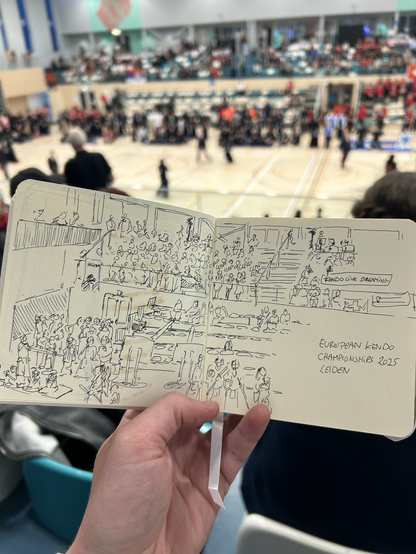 KENDO LIVE STREAMING
EUROPEAN KENDO
CHAMPIONSHIPS 2025
LEIDEN